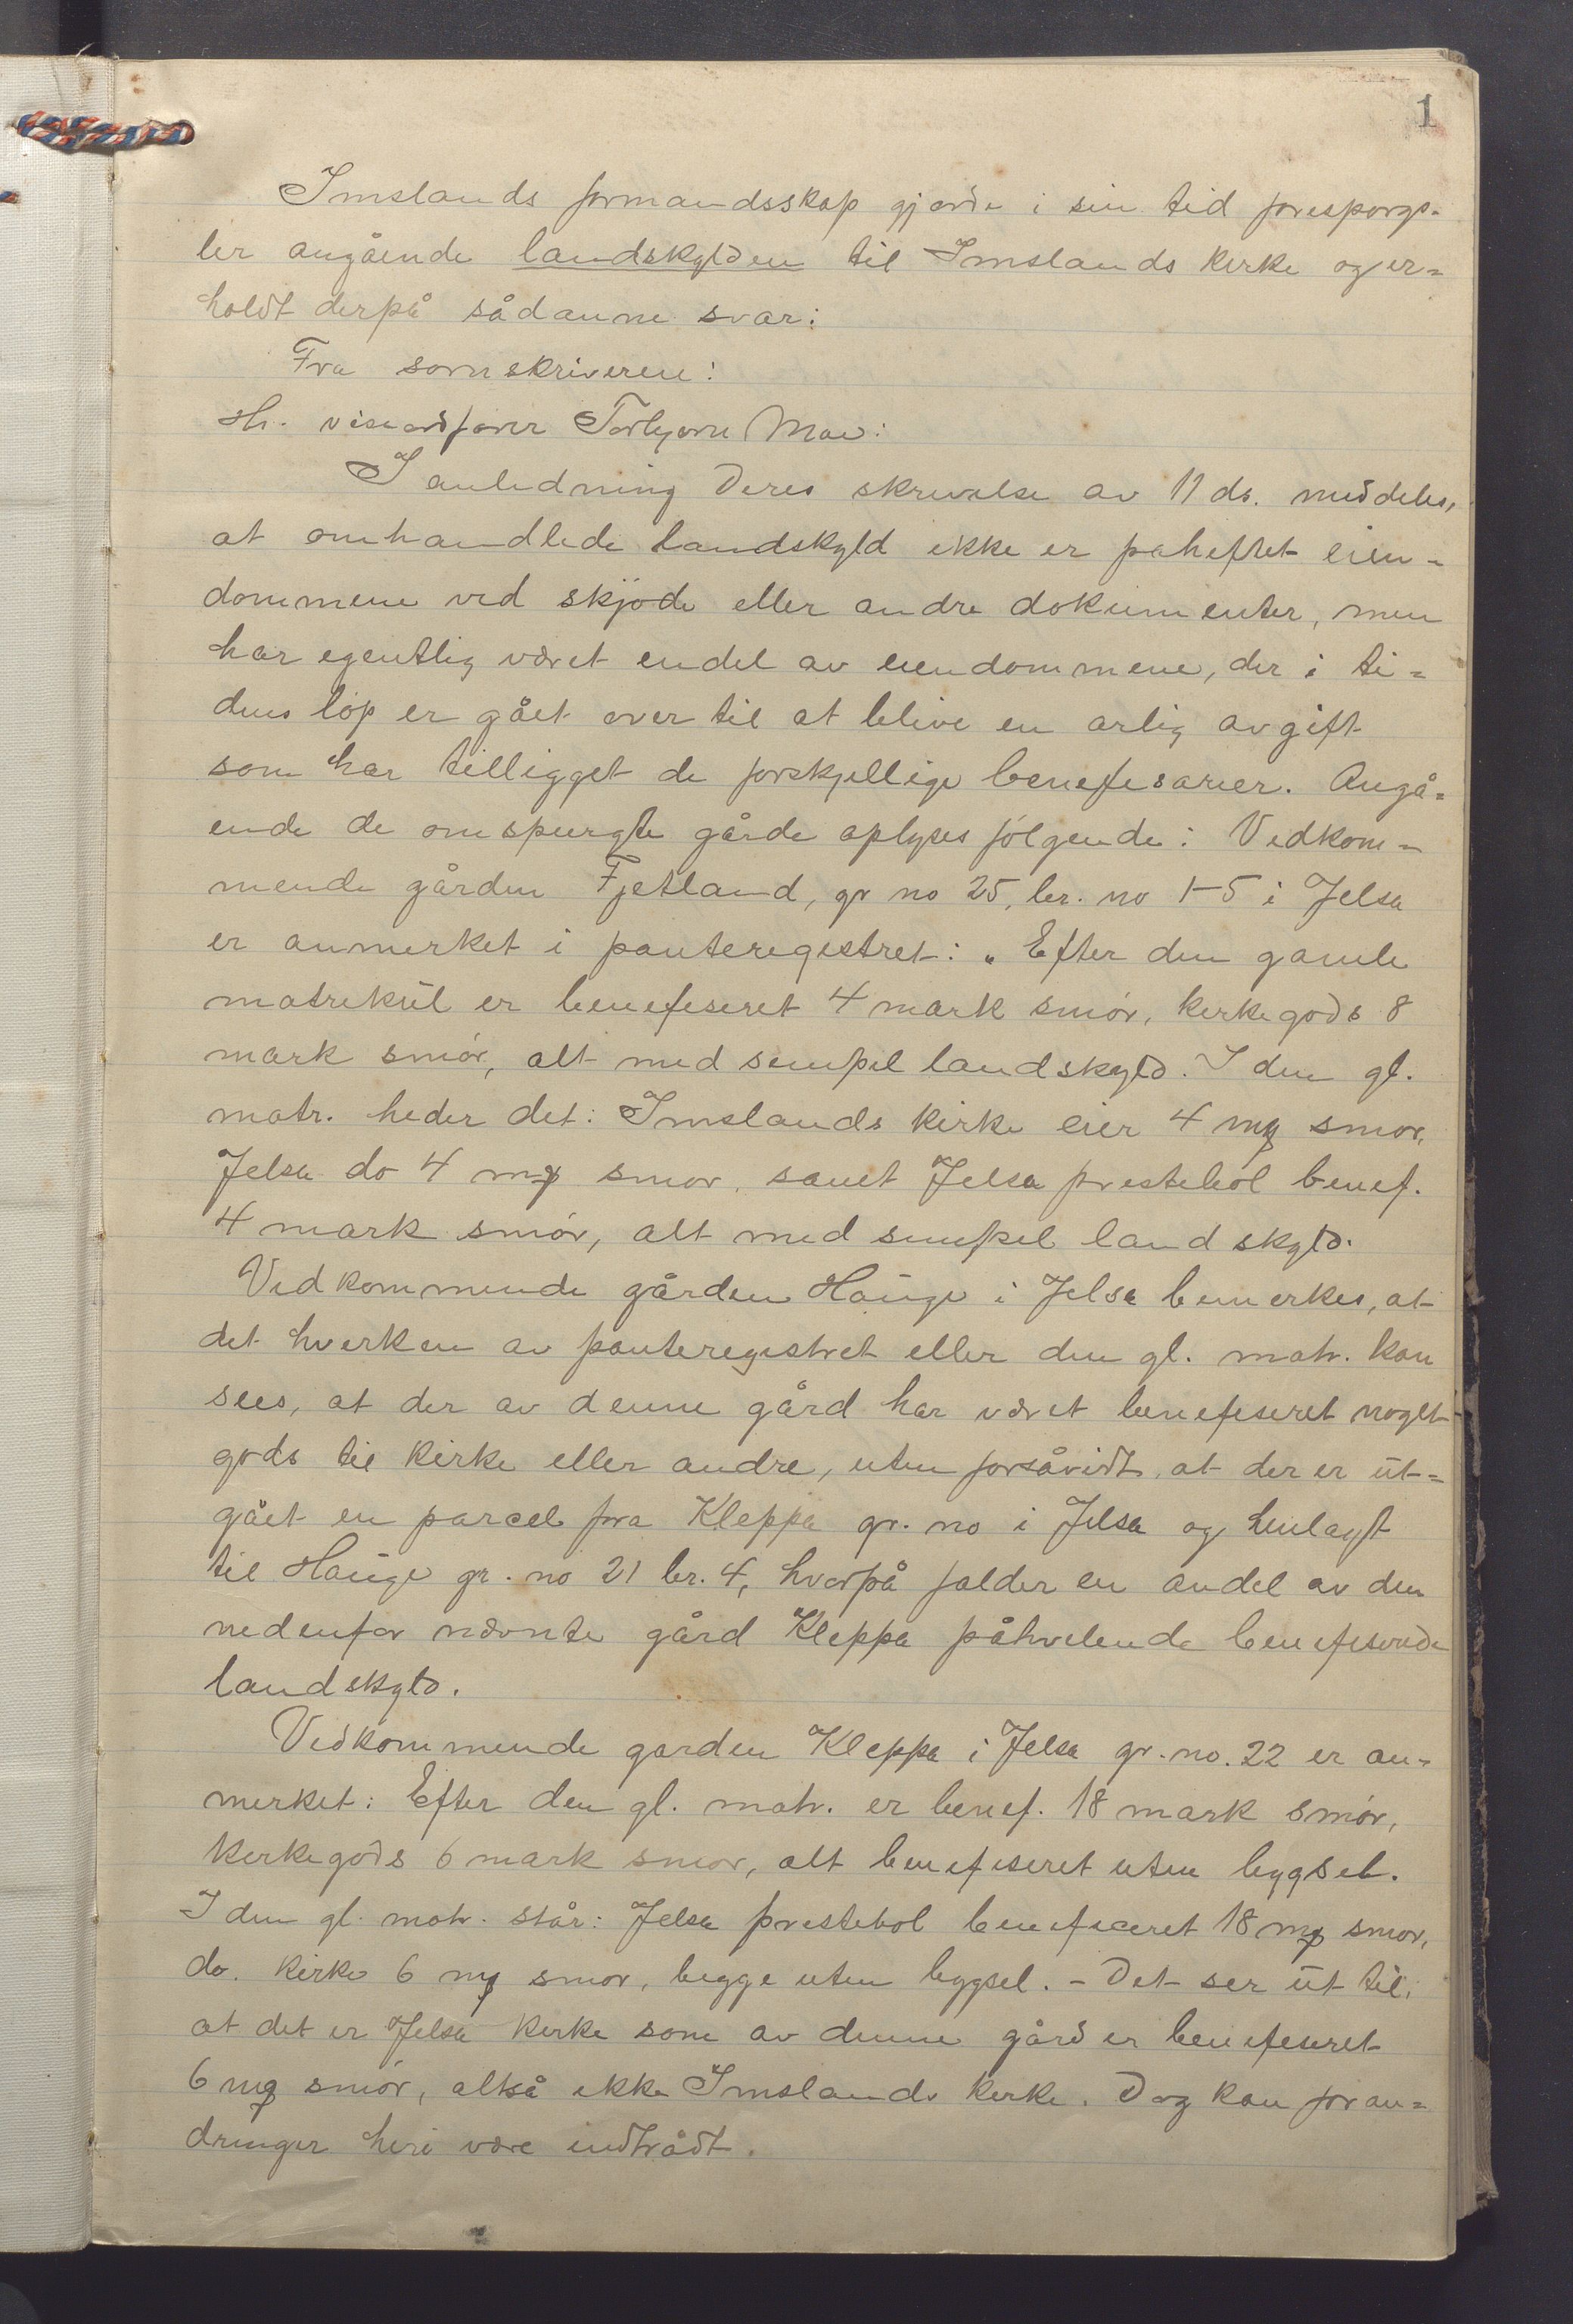 1
Imslands formandsskap gjorde i sin tid forespørgs-
ler angående landskylden til Imslands kirke og er-
holdt derpå sådanne svar:
Fra sorenskriveren:
Hr. viseordfører Torbjørn Mæle:
I anledning Deres skrivelse av 11 ds. meddeles,
at omhandlede landskyld ikke er påheftet eien-
dommene ved skjöde eller andre dokumenter, men
har egentlig været endel av eiendommene, der i ti-
dens löp er gået over til at blive en årlig avgift
som har tilligget de forskjellige benefisarier. Angå-
ende de omspurgte gårde oplyses fölgende: Vedkom-
mende gården Fjetland, gr no 25, br. no 1-5 i Jelsa
er anmerket i panteregistret: „Efter den gamle
matrikül er benefiseret 4 mark smör, kirkegods 8
mark smör, alt med simpel landskyld. I den gl.
matr. heder det: Imslands kirke eier 4 mg smør,
Jelsa do 4 mg smør, samt Jelsa prestebol benef.
4 mark smör, alt med simpel landskyld.
Vedkommende gården Haüge i Jelsa bemerkes, at
det hverken av panteregistret eller den gl. matr. kan
sees, at der av denne gård har været benefiseret noget
gods til kirke eller andre, uten forsåvidt, at der er üt-
gået en parcel fra Kleppa gr. no i Jelsa og henlagt
til Haüge gr. no 21 br. 4, hvorpå falder en andel av den
nedenfor nævnte gård Kleppa påhvilende benefiserede
landskyld.
Vedkommende garden Kleppa i Jelsa gr. no. 22 er an-
merket: Efter den gl. matr. er benef. 18 mark smör,
kirkegods 6 mark smør, alt benefiseret uten bygsel.
I den gl. matr. står: Jelsa prestebol beneficeret 18 mg smør,
do. kirke 6 mg smør, begge uten bygsel. – Det ser üt til,
at det er Jelsa kirke som av denne gård er benefiseret
6 mg smör, altså ikke Imslands kirke. Dog kan foran-
dringer heri være indtrådt.